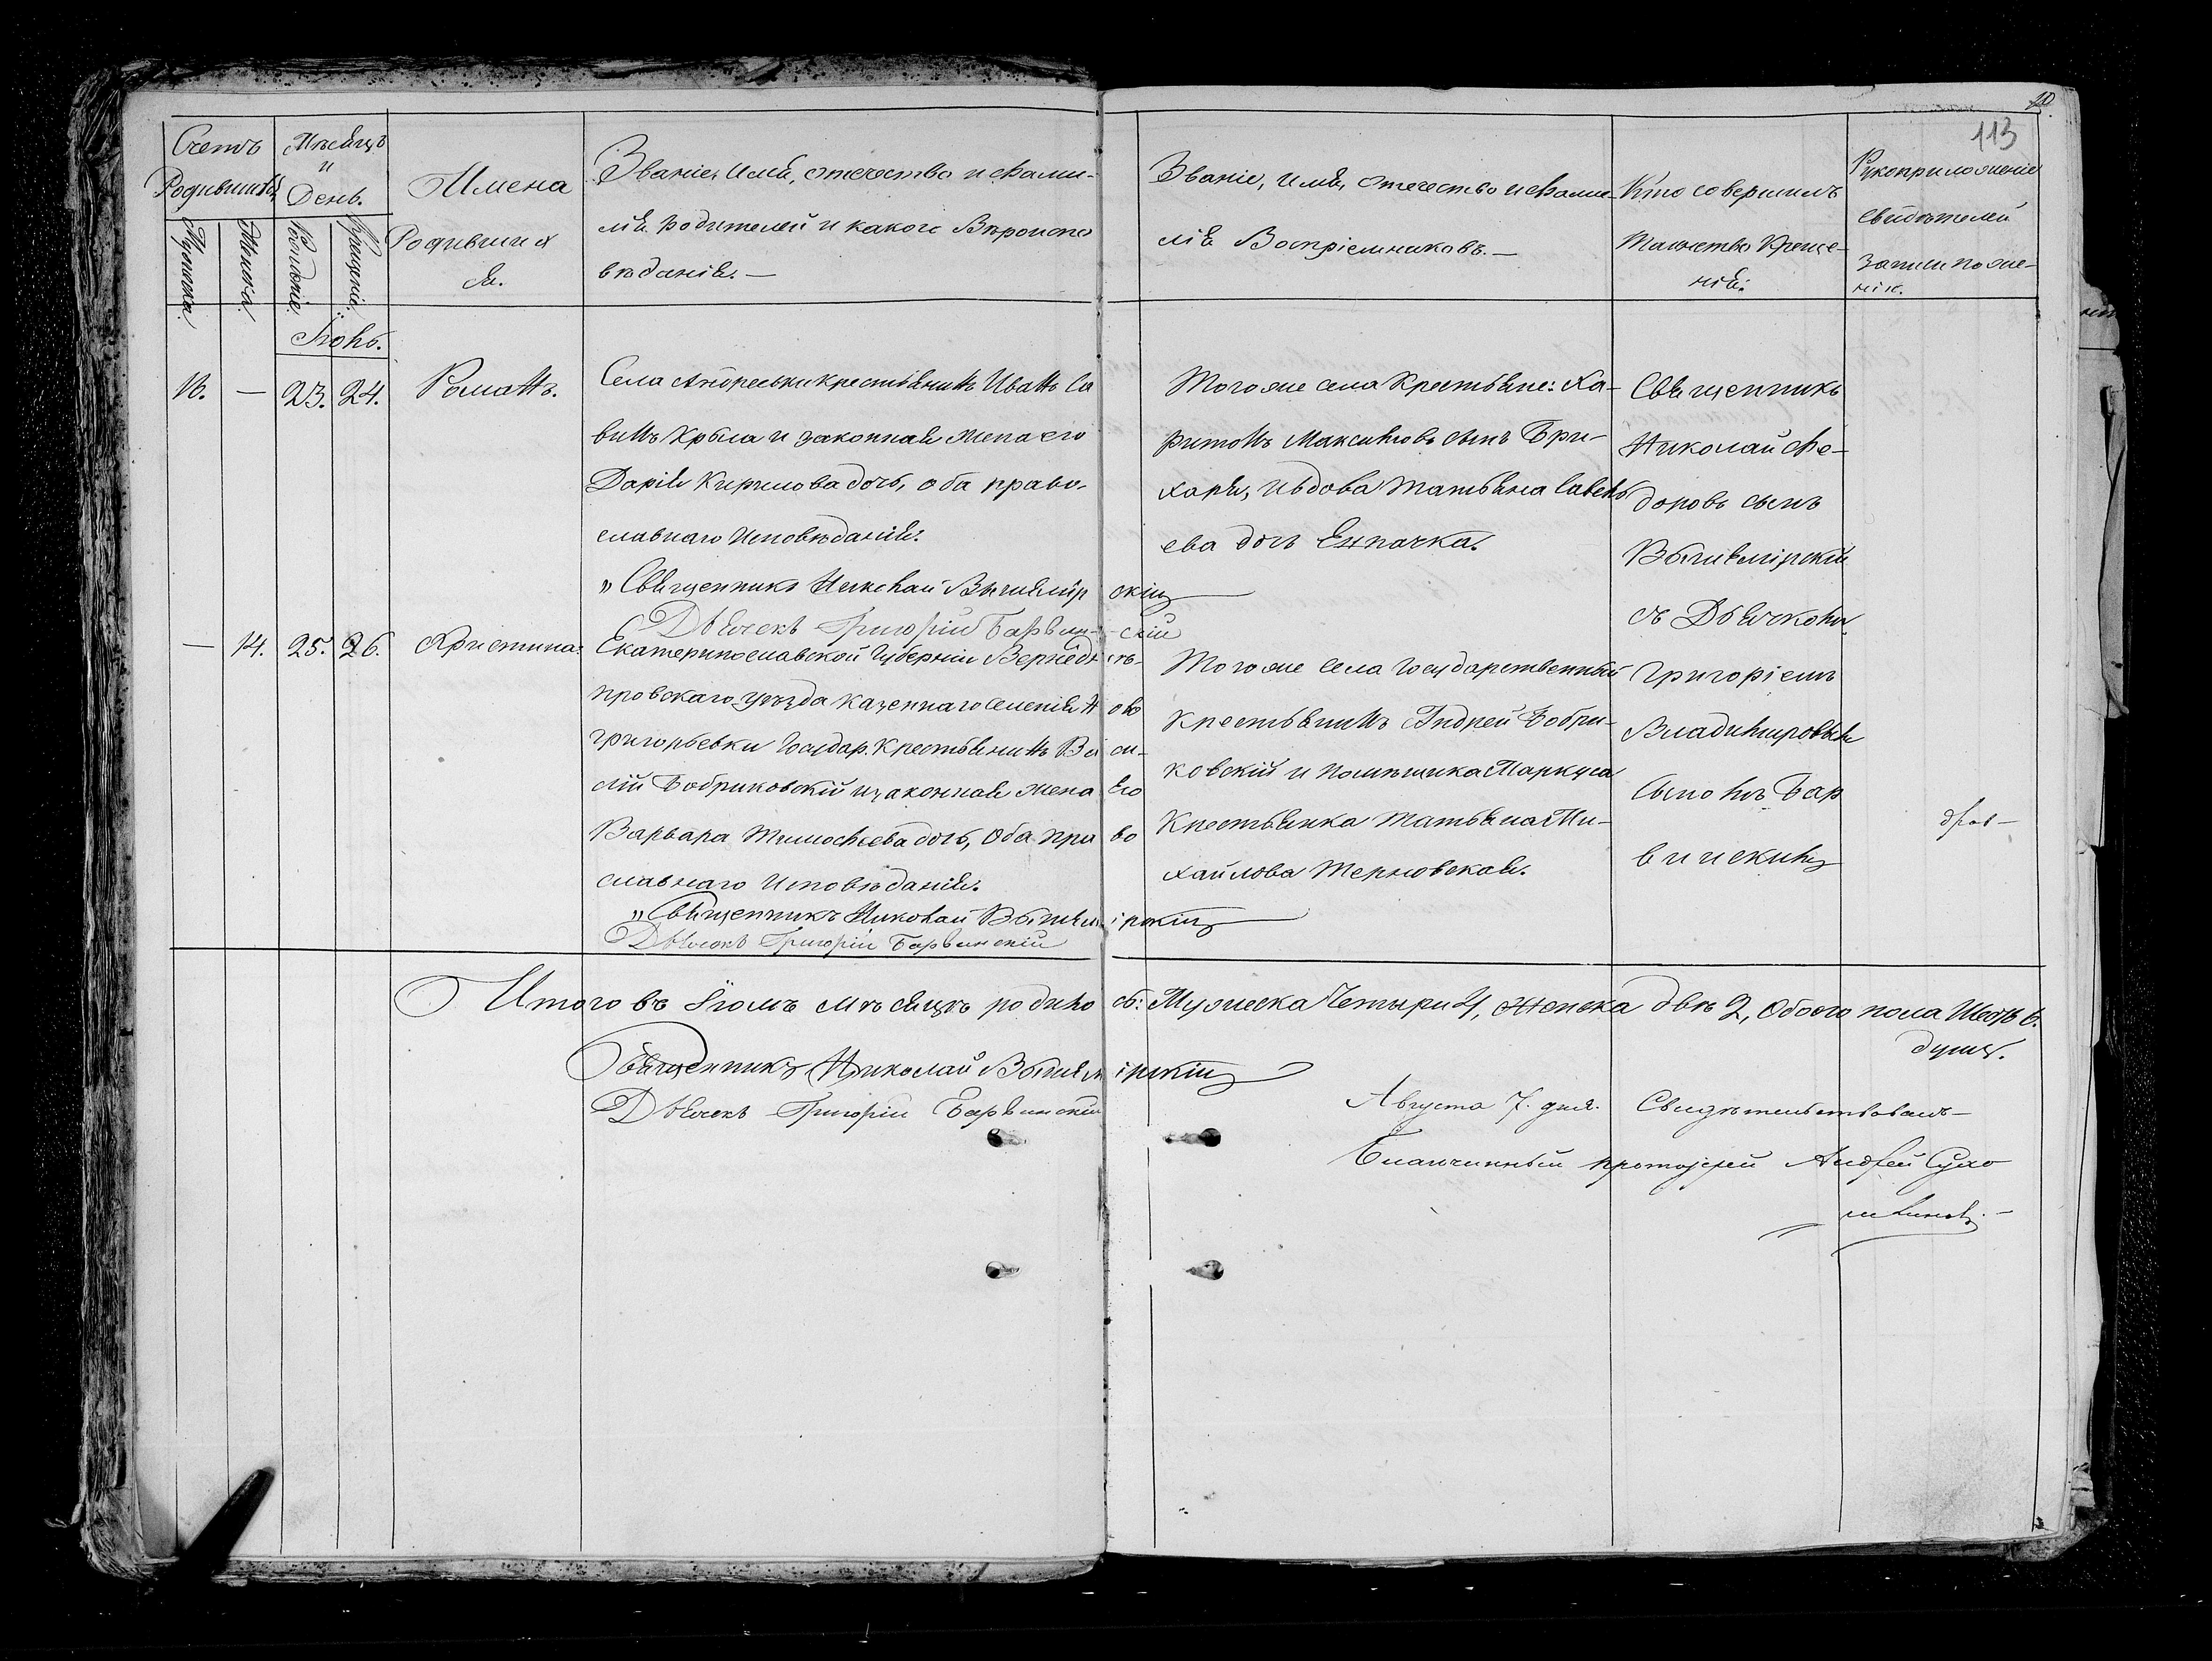 20
113
Счетъ
Родившихся
Мѣсяцъ
и
День.
Мужеска.
Женска.
Рожденіе.
Крещеніе.
Имена
Родивших
ся.
Званіе, имя, отечество и фами-
лія родителей и какого Вѣроиспо
вѣданія. —
Званіе, имя, Отечество и фами-
лія Воспріемниковъ. —
Кто совершилъ
Таинство Креще-
нія.
Рукоприложеніе
Свидѣтелей
записи по же-
нію.
Іюнь.
16. — 23. 24. Романъ.
Села Андреевки крестьянинъ Иванъ Са
винъ Крыла и законная жена его
Дарія Кирилова дочь, оба право-
славнаго исповѣданія.
„Священникъ Николай Вышемірскій
Дьячекъ Григорій Барвинскій
Того же села Крестьяне: Ха-
ритонъ Максимовъ сынъ Бри-
харя, Вдова Татьяна Савель
ева дочь
Священникъ
Николай Фе-
доровъ сынъ
Вышемірскій
съ Дьячкомъ
Григоріемъ
Владиміровымъ
Сыномъ Бар
винскимъ
— 14. 25. 26. Христина.
Екатеринославской Губерніи Верхнеднѣ-
провскаго уѣзда казеннаго селенія Ново
григорьевки Государ. Крестьянинъ Васи-
лій Бобриковскій и законная жена Его
Варвара Тимофеева дочь, Оба право
славнаго Исповѣданія.
„Священникъ Николай Вышемірскій
Дьячокъ Григорій Барвинскій
Того же села Государственный
Крестьянинъ Андрей Бобри-
ковскій и помѣщика Маркуса
Крестьянка Татьяна Ми-
хайлова Терновская.
Итого въ Іюнѣ мѣсяцѣ родилось: Мужеска Четыри 4, Женска двѣ 2, Обоего пола Шесть 6.
душъ.
Священникъ Николай Вышемірскій
Дьячекъ Григорій Барвинскій
Августа 7. дня. Свидѣтельствовалъ —
Благочинный протоіерей Андрей Сухо